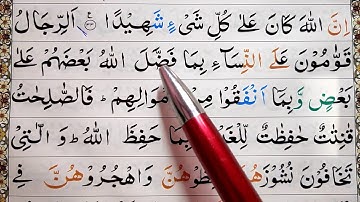 اِنَّ اللّٰهَ كَانَ عَلٰى كُلِّ شَىْءٍ شَهِيْدًا ۞ اَلرِّجَالُ
قَوّٰمُوْنَ عَلَى النِّسَآءِ بِمَا فَضَّلَ اللّٰهُ بَعْضَهُمْ عَلٰى
بَعْضٍ وَّبِمَآ اَنْفَقُوْا مِنْ اَمْوَالِهِمْ ؕ فَالصّٰلِحٰتُ
قٰنِتٰتٌ حٰفِظٰتٌ لِّلْغَيْبِ بِمَا حَفِظَ اللّٰهُ ؕ وَ الّٰتِىْ
تَخَافُوْنَ نُشُوْزَهُنَّ وَاهْجُرُوْهُنَّ فِى